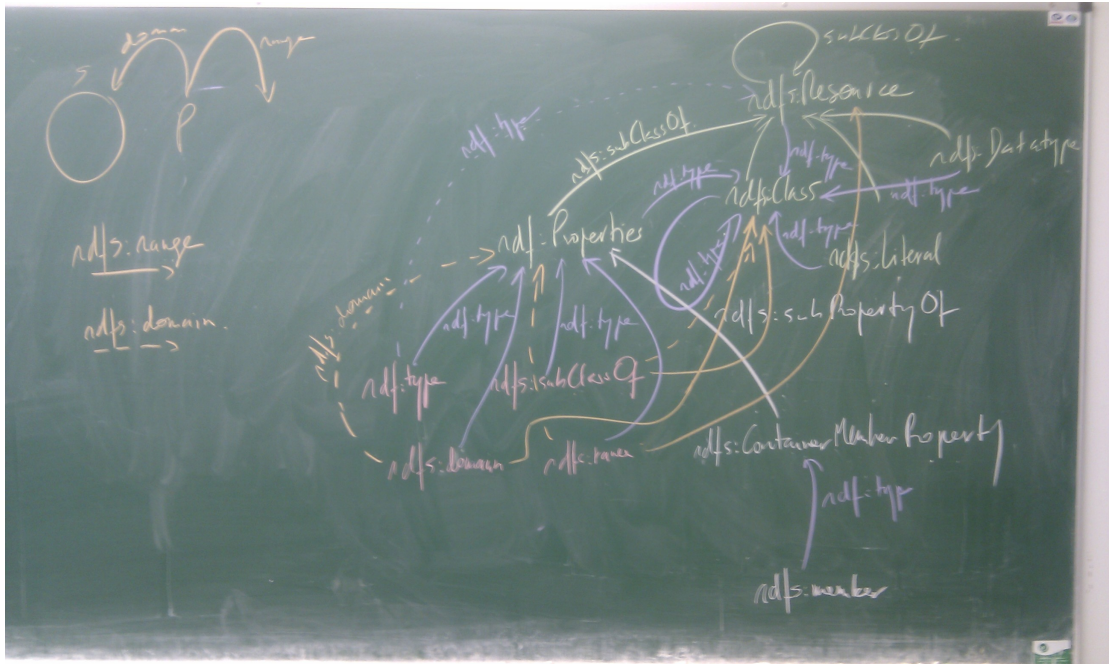 domain
range
S
P
subClassOf.
rdfs:Resource
rdf:type
rdfs:subClassOf
rdfs:Datatype
rdf:type
rdf:type
rdfs:Class
rdf:type
rdf:Properties
rdf:type
rdf:type
rdfs:Literal
rdfs:range
rdfs:domain
rdfs:subPropertyOf
rdfs:domain.
rdf:type
rdf:type
rdf:type
rdfs:subClassOf
rdfs:domain
rdfs:range
rdfs:ContainerMemberProperty
rdf:type
rdfs:member